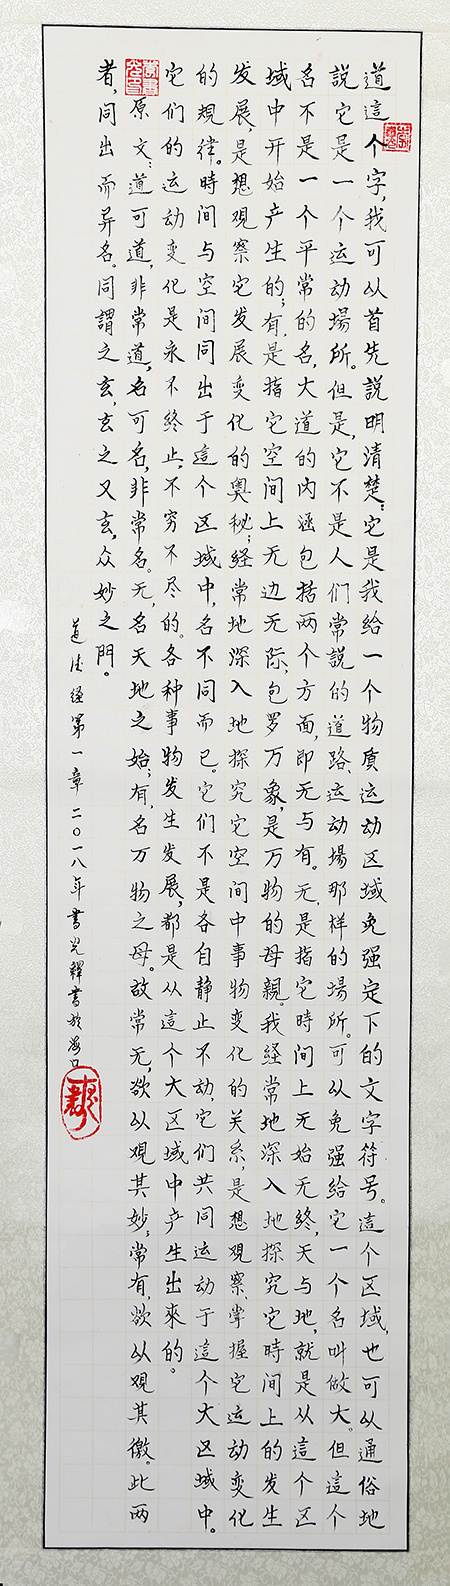 道這个字,我可以首先説明清楚:它是我给一个物质运动区域免强定下的文字符号。這个区域,也可以通俗地
説它是一个运动場所。但是,它不是人们常説的道路、运动場那样的場所。可以免强给它一个名叫做大。但這个
名不是一个平常的名,大道的内涵包括两个方面,即无与有。无,是指它時间上无始无终,天与地,就是从這个区
域中开始产生的;有,是指它空间上无边无际,包罗万象,是万物的母親。我经常地深入地探究它時间上的发生
发展,是想观察它发展变化的奥秘;经常地深入地探究它空间中事物变化的关系,是想观察、掌握它运动变化
的規律。時间与空间同出于這个区域中,名不同而已。它们不是各自静止不动,它们共同运动于這个大区域中。
它们的运动变化是永不终止,不穷不尽的。各种事物发生发展,都是从這个大区域中产生出來的。
原文:道可道,非常道,名可名,非常名。无,名天地之始;有,名万物之母。故常无,欲以观其妙;常有,欲以观其徼。此两
者,同出而异名。同謂之玄,玄之又玄,众妙之門。
道德經第一章 二〇一八年 書於海口